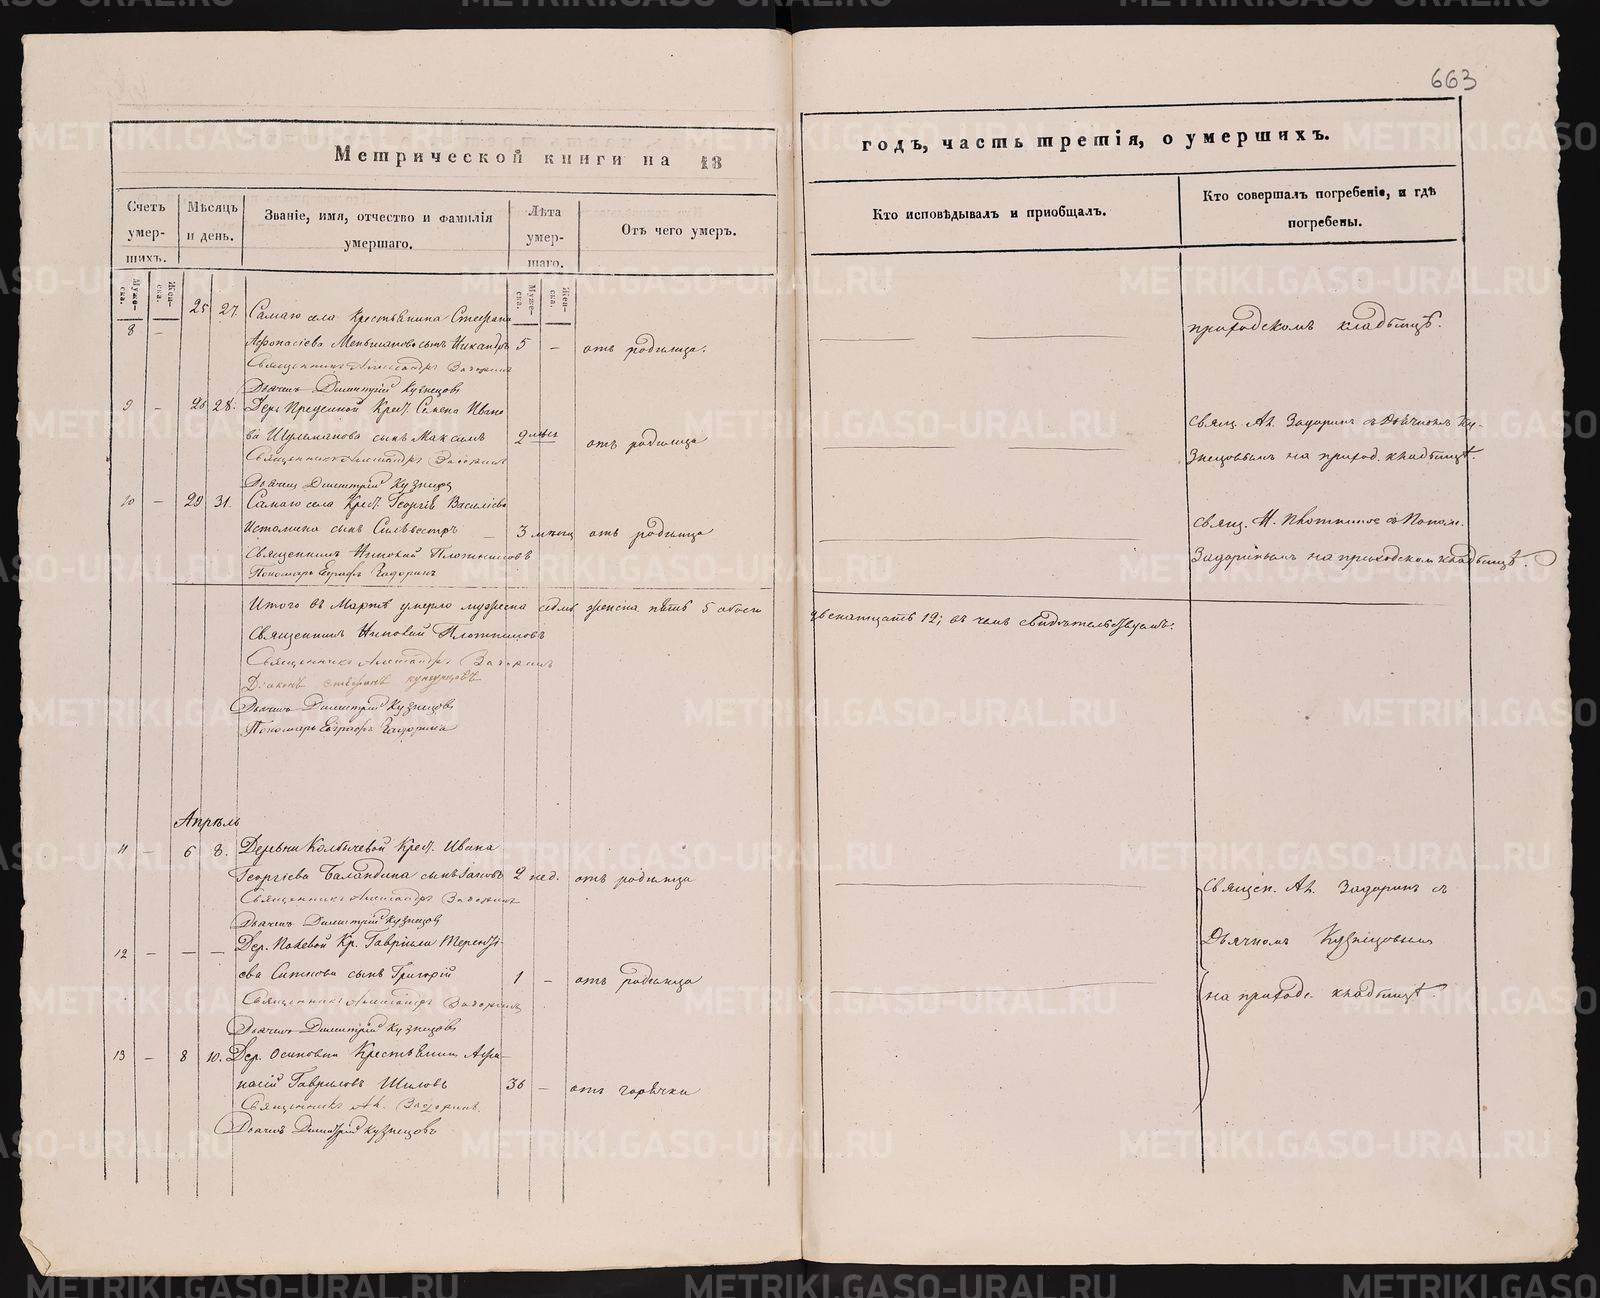 663
Метрической книги на 18
годъ, часть третія, о умершихъ.
Счетъ умер-шихъ.
Мѣсяцъ и день.
Званіе, имя, отчество и фамилія умершаго.
Лѣта умер-шаго.
Отъ чего умеръ.
Кто исповѣдывалъ и приобщалъ.
Кто совершалъ погребеніе, и гдѣ погребены.
Муже-ска. Жен-ска.
Муже-ска. Жен-ска.
25 27. Самаго села Крестьянина Стефана
8 — Афонасіева Меньшикова сынъ Никандръ 5 — отъ родимца. приходскомъ кладбищѣ.
Священникъ Александръ Задоринъ
Дьячекъ Димитрій Кузнецовъ
9 — 26 28. Дер. Крест. Семена Ивано
ва Шульманова сынъ Максимъ 2 мѣс отъ родимца
Священникъ Александръ Задоринъ
Дьячекъ Димитрій Кузнецов
Свящ. Ал. Задоринъ съ Дьячкомъ Ку-
знецовымъ на приход. кладбищѣ.
10 — 29 31. Самаго села Крест. Георгія Василіева
Истомина сынъ Сильвестръ — 3 отъ родимца
Священникъ Николай Плотниковъ
Пономарь Евграфъ Задоринъ
Свящ. Н. Плотников съ Поном.
Задоринымъ на приходском кладбищѣ.
Итого въ Мартѣ умерло мужеска седмь женска пять 5 обоего
двенатцать 12; въ чемъ свидѣтельствуемъ.
Священникъ Николай Плотниковъ
Священникъ Александръ Задоринъ
Діаконъ Стефанъ Кузнецовъ
Дьячекъ Димитрій Кузнецовъ
Пономарь Евграфъ Задоринъ
Апрѣль
11 — 6 8. Деревни Колбичевой Крест. Ивана
Георгіева Баландина сынъ Іаковъ 2 нед. отъ родимца
Священникъ Александръ Задоринъ
Дьячекъ Димитрій Кузнецовъ
12 — — — Дер. Полевой Кр. Гавріила Теренті-
ева Ситкова сынъ Григорій 1 — отъ родимца
Священникъ Александръ Задоринъ
Дьячекъ Димитрій Кузнецовъ
13 — 8 10. Дер. Осиновки Крестьянинъ Афа-
насій Гавриловъ Шиловъ 36 — отъ горячки
Священникъ Ал. Задоринъ.
Дьячекъ Димитрій Кузнецовъ
Священ. Ал. Задоринъ съ
Дьячкомъ Кузнецовымъ
на приходс. кладбищѣ.
METRIKI.GASO-URAL.RU